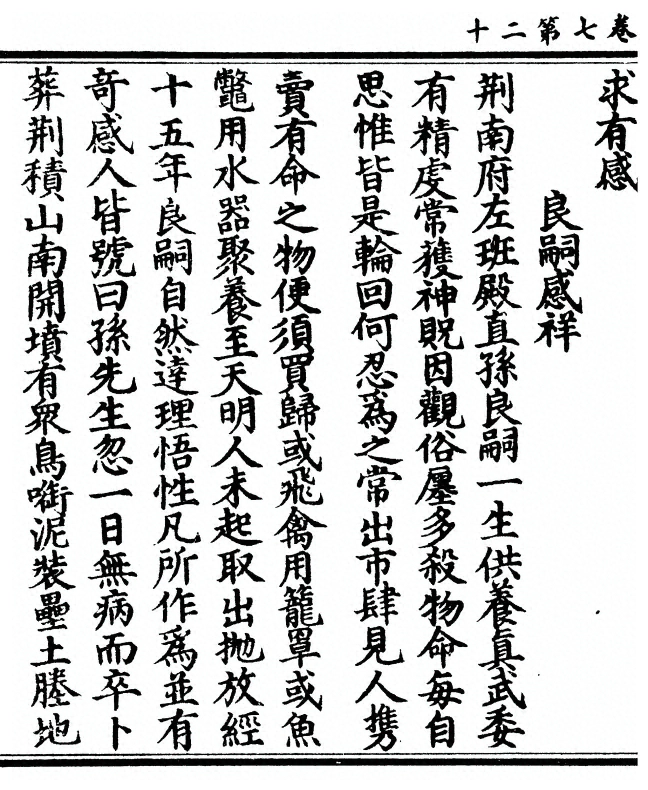 卷七第二十
求有感
良嗣感祥
荆南府左班殿直孫良嗣一生供養真武委
有精虔常獲神貺因觀俗屢多殺物命每自
思惟皆是輪回何忍爲之常出市肆見人携
賣有命之物便須買歸或飛禽用籠罩或魚
鼈用水器聚養至天明人未起取出抛放經
十五年良嗣自然達理悟性凡所作爲並有
竒感人皆號曰孫先生忽一日無病而卒卜
葬荆積山南開墳有衆鳥啣泥裝壘土塍地